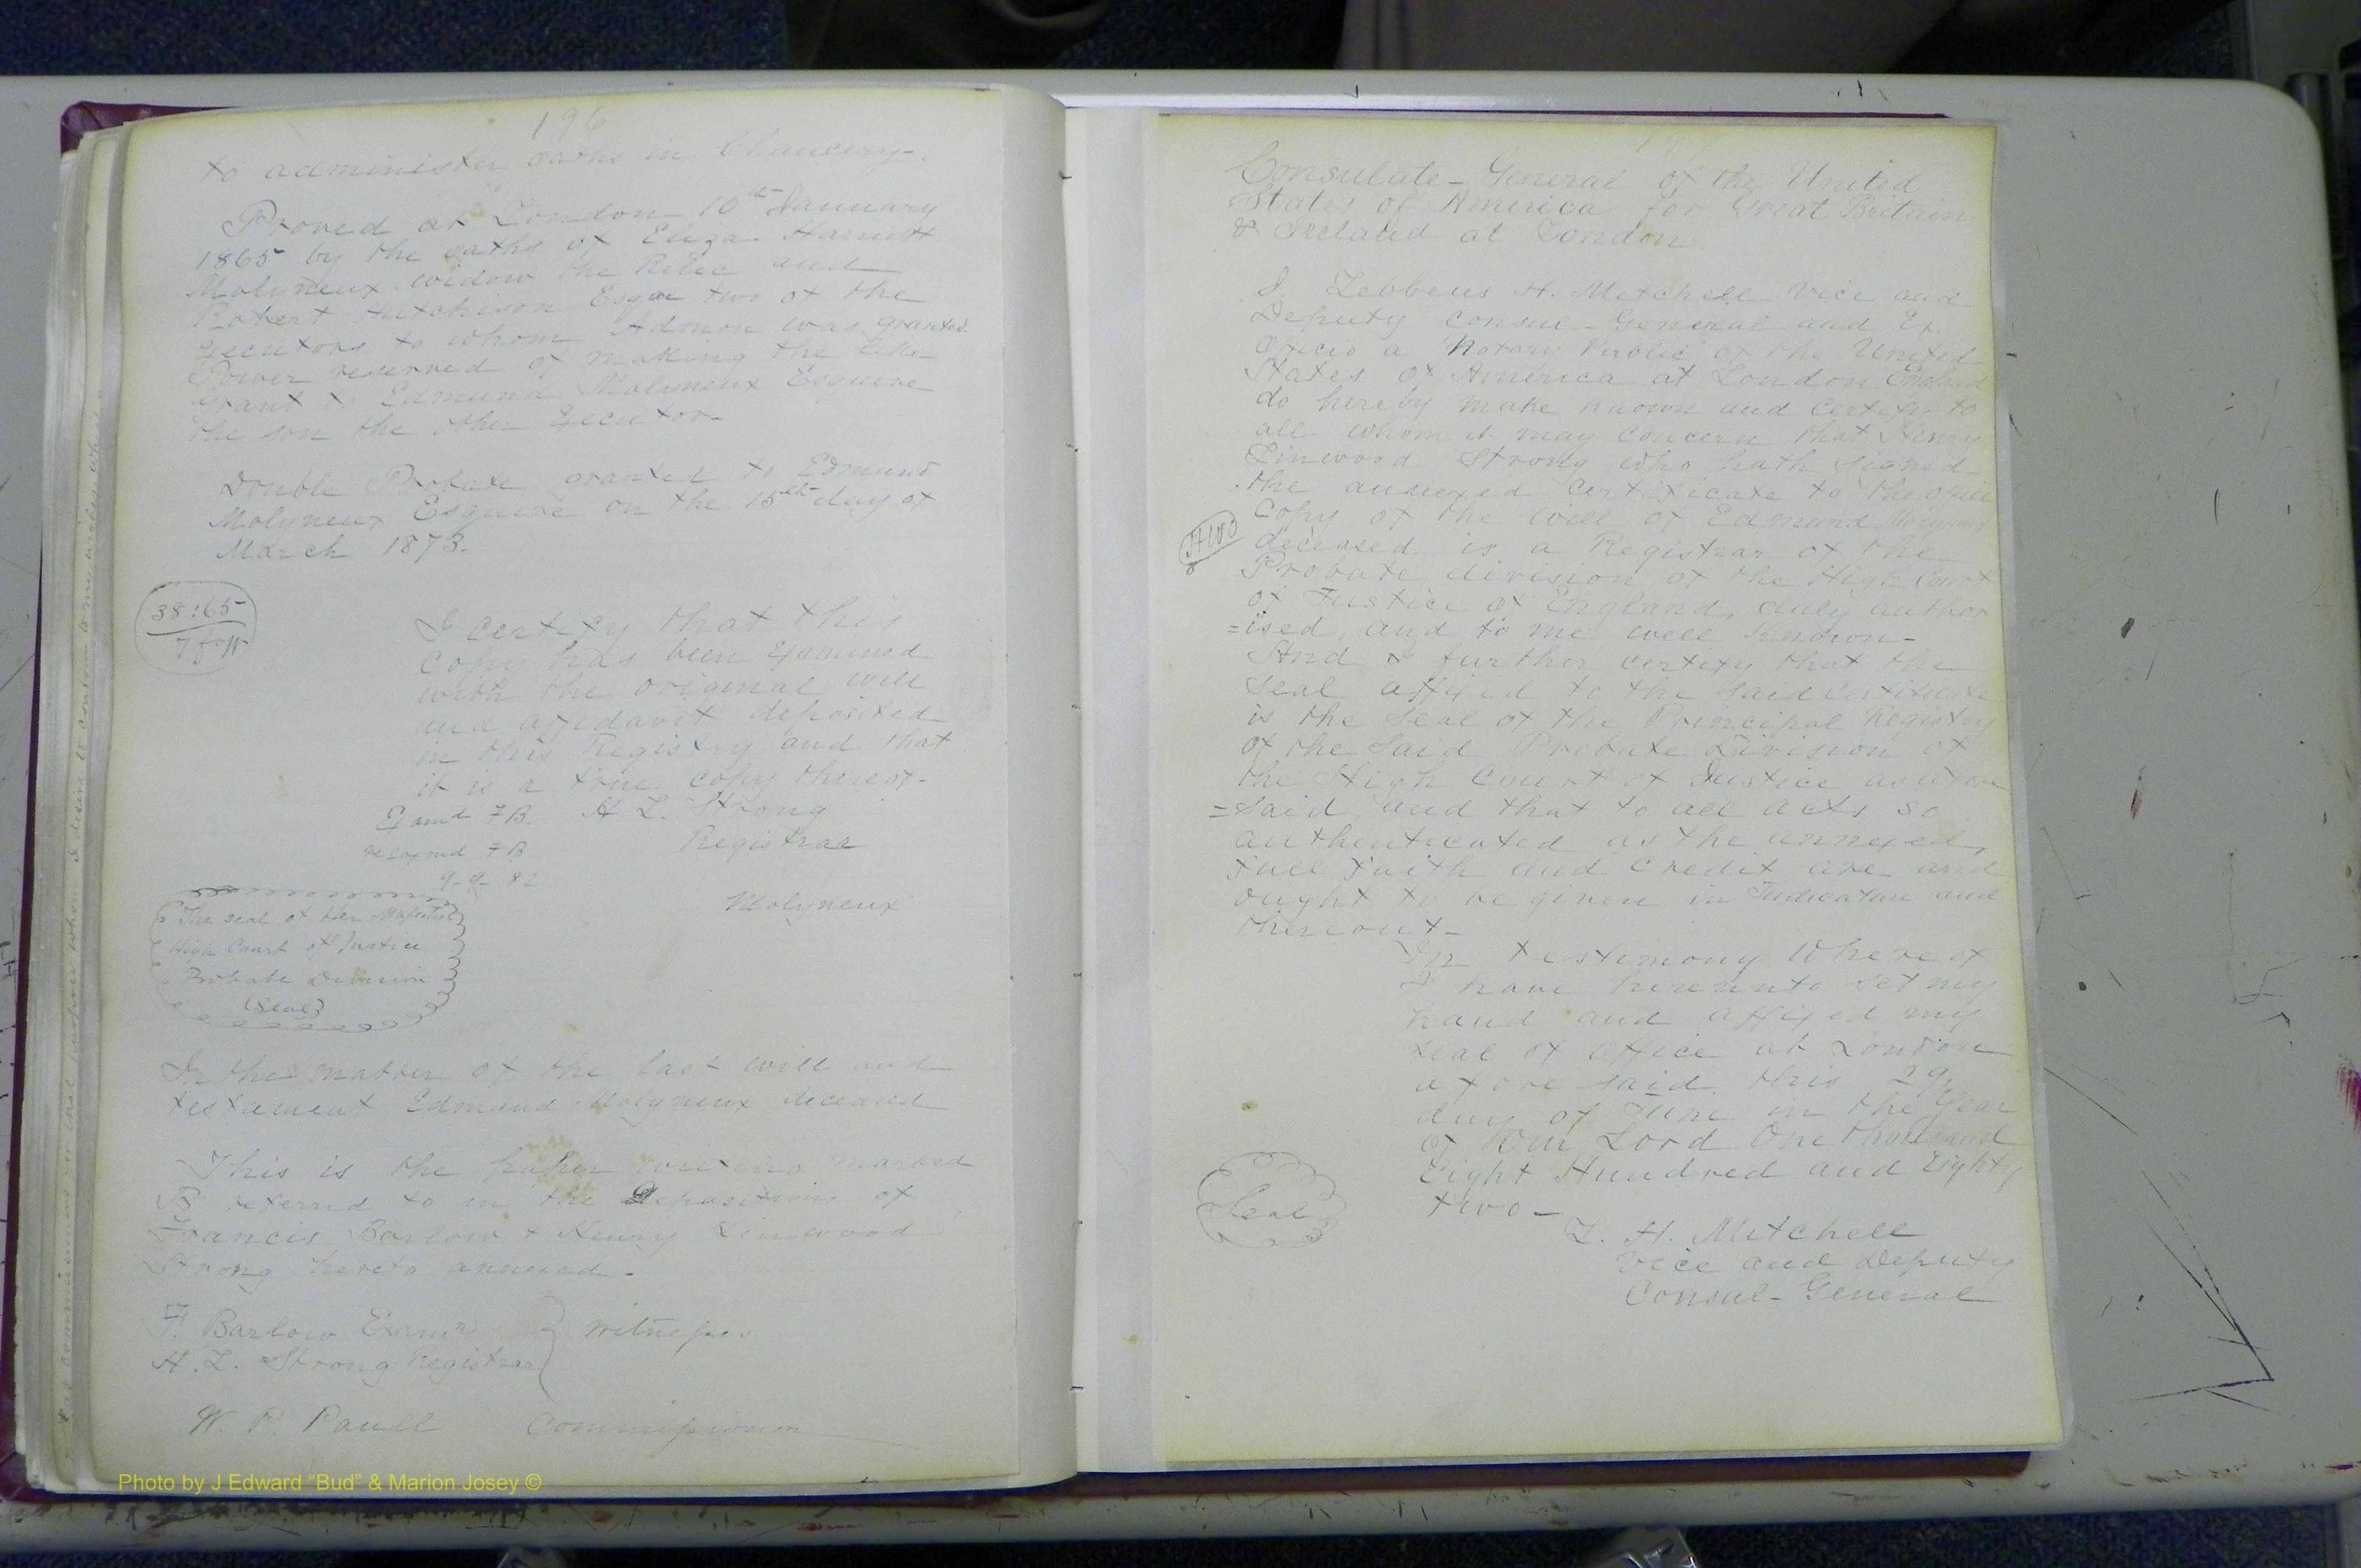 196
to administer oaths in Chancery-
Proved at London 10th January
1865 by the oaths of Eliza Harriett
Molyneux widow the Relic and
Robert Hutchison Esque two of the
Executors to whom Admon was granted
Power reserved of making the like
grant to Edmund Molyneux Esquire
the son the other Executor-
Double Probate granted to Edmund
Molyneux Esquire on the 15th day of
March 1873.
38:65
I certify that this
copy has been Examined
with the original will
and affidavit deposited
in this Registry and that
it is a true copy thereof-
Examd FB. H L. Strong
FB Registrar
9-9-82
Molyneux
The seal of her Majestys
High Court of Justice
Probate Division
(Seal)
In the matter of the last will and
testament Edmund Molyneux deceased
This is the paper writing marked
B referred to in the Depositions of
Francis Barlow & Henry Linwood
Strong hereto annexed-
F. Barlow Examr
H. L. Strong Registrar } Witnesses
W. P. Paull Commissioner
Consulate-General of the United
States of America for Great Britain
& Ireland at London
I Lebbeus H. Mitchell Vice and
Deputy Consul-General and Ex
Oficio a Notary Public of the United
States of America at London England
do hereby make known and certify to
all whom it may concern that Henry
Linwood Strong who hath signed
the annexed Certificate to the
Copy of the will of Edmund Molyneux
deceased is a Registrar of the
Probate division of the High Court
of Justice of England, duly author
=ised, and to me well Known-
And I further certify that the
seal affixed to the said certificate
is the seal of the Principal Registry
of the said Probate Division of
the High Court of Justice as afore
=said and that to all acts so
authenticated as the annexed,
full faith and credit are and
ought to be given in Judicature and
thereout-
In testimony Whereof
I have hereunto set my
hand and affixed my
seal of office at London
afore said this 29
day of June in the Year
of Our Lord One thousand
Eight Hundred and Eighty
two-
Seal
L. H. Mitchell
Vice and Deputy
Consul-General
Photo by J Edward “Bud” & Marion Josey ©